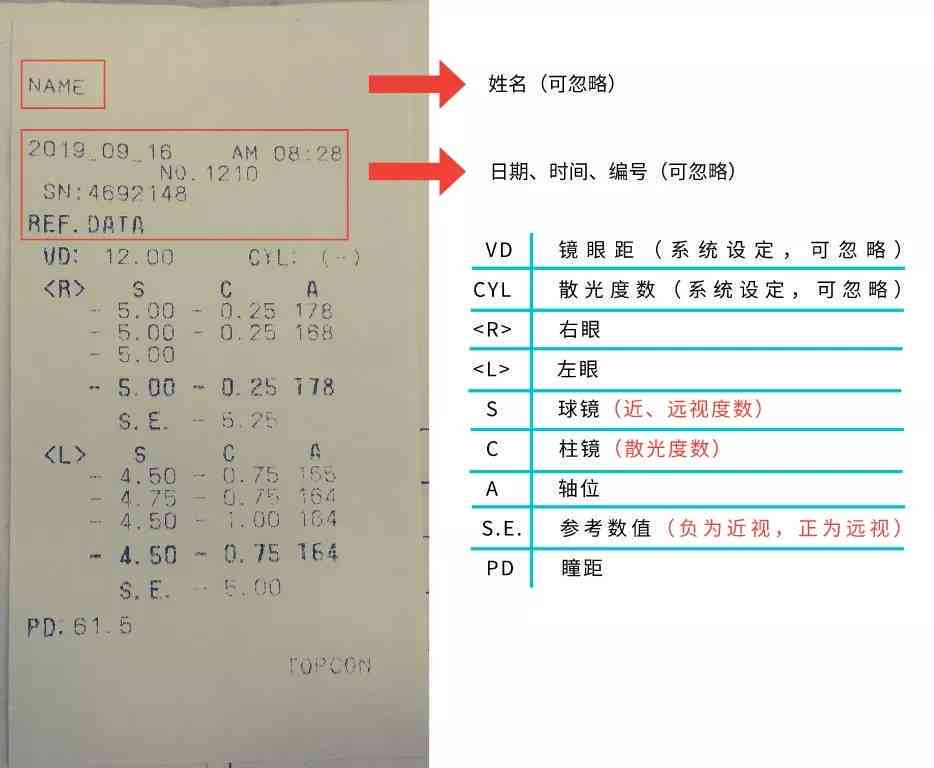 NAME
2019_09_16 AM 08:28
NO.1210
SN:4692148
REF.DATA
VD: 12.00 CYL: (-)
<R> S C A
- 5.00 - 0.25 178
- 5.00 - 0.25 168
- 5.00
- 5.00 - 0.25 178
S.E. - 5.25
<L> S C A
- 4.50 - 0.75 165
- 4.75 - 0.75 164
- 4.50 - 1.00 164
- 4.50 - 0.75 164
S.E. - 5.00
PD.61.5
TOPCON
姓名（可忽略）
日期、时间、编号（可忽略）
VD 镜眼距（系统设定，可忽略）
CYL 散光度数（系统设定，可忽略）
<R> 右眼
<L> 左眼
S 球镜（近、远视度数）
C 柱镜（散光度数）
A 轴位
S.E. 参考数值（负为近视，正为远视）
PD 瞳距